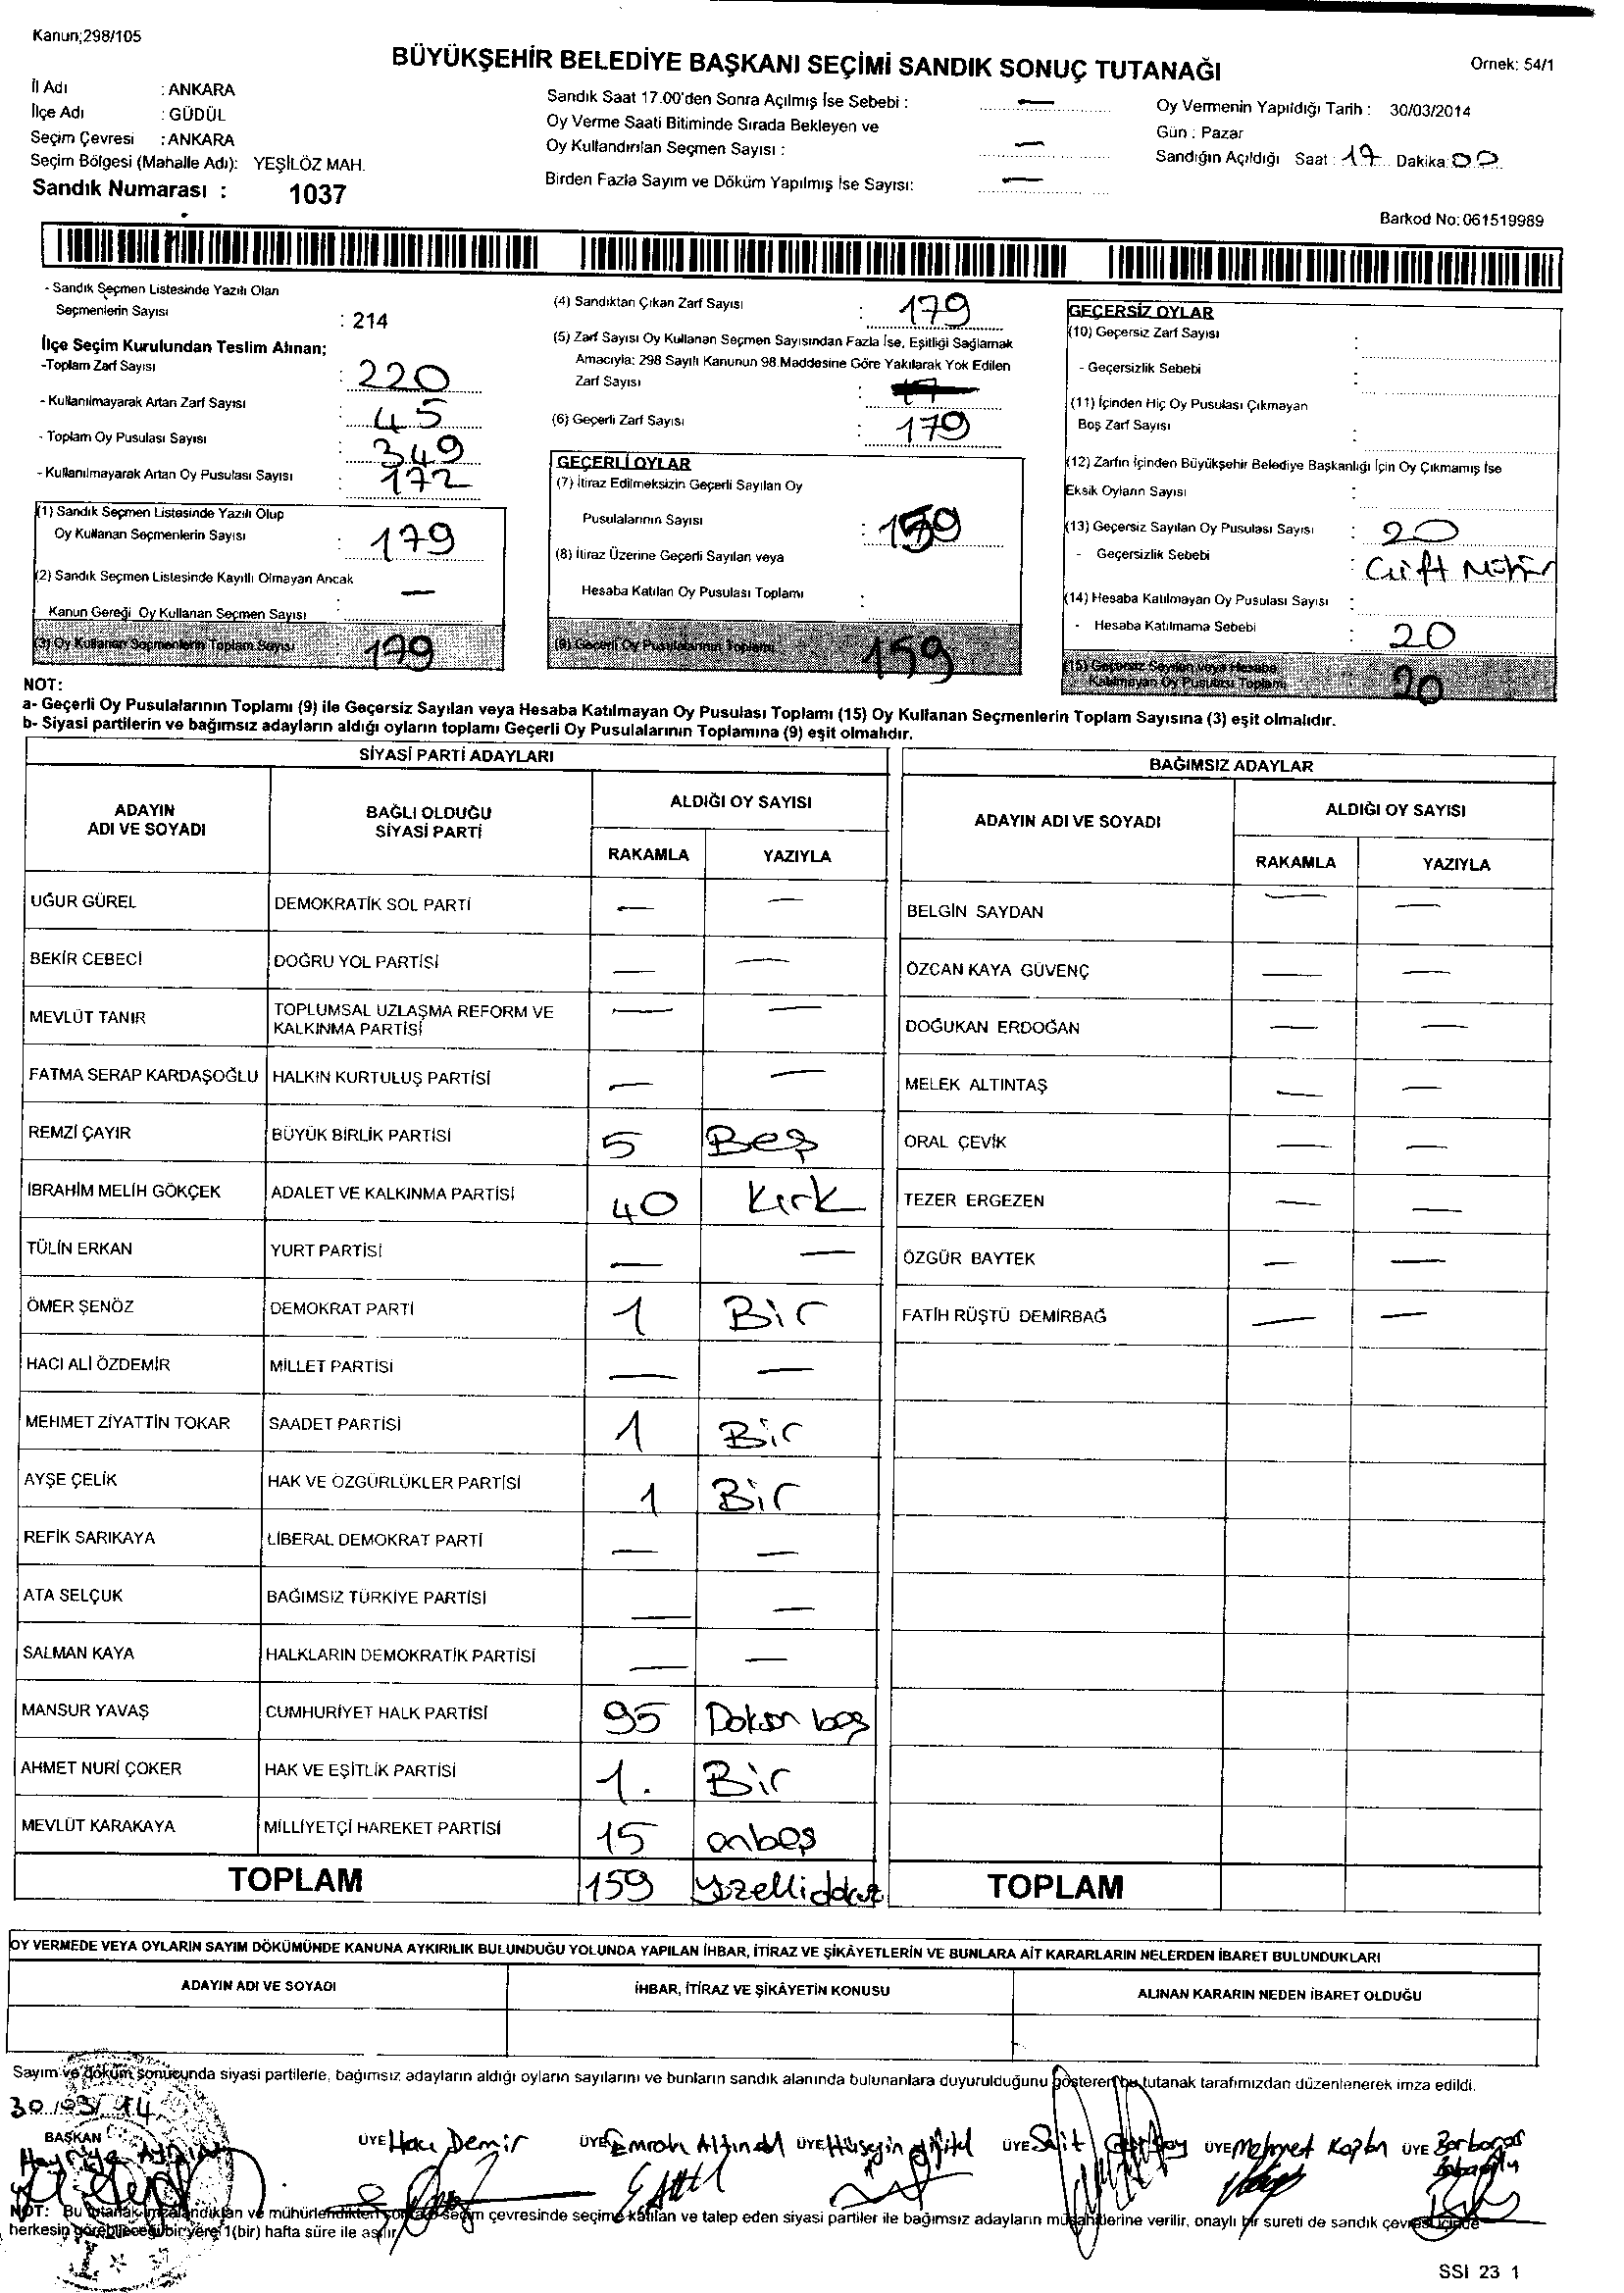 Kanun;298/105
BÜYÜKŞEHİR BELEDİYE BAŞKANI SEÇİMİ SANDIK SONUÇ TUTANAĞI
Ornek: 54/1
İl Adı : ANKARA
İlçe Adı : GÜDÜL
Seçim Çevresi : ANKARA
Seçim Bölgesi (Mahalle Adı): YEŞİLÖZ MAH.
Sandık Numarası : 1037
Sandık Saat 17.00'den Sonra Açılmış İse Sebebi : —
Oy Verme Saati Bitiminde Sırada Bekleyen ve
Oy Kullandırılan Seçmen Sayısı : —
Birden Fazla Sayım ve Döküm Yapılmış İse Sayısı: —
Oy Vermenin Yapıldığı Tarih : 30/03/2014
Gün : Pazar
Sandığın Açıldığı Saat : 17 Dakika: 00
Barkod No: 061519989
- Sandık Seçmen Listesinde Yazılı Olan
Seçmenlerin Sayısı : 214
İlçe Seçim Kurulundan Teslim Alınan;
-Toplam Zarf Sayısı : 220
- Kullanılmayarak Artan Zarf Sayısı : 45
- Toplam Oy Pusulası Sayısı : 349
- Kullanılmayarak Artan Oy Pusulası Sayısı : 172
(1) Sandık Seçmen Listesinde Yazılı Olup
Oy Kullanan Seçmenlerin Sayısı : 179
(2) Sandık Seçmen Listesinde Kayıllı Olmayan Ancak
Kanun Gereği Oy Kullanan Seçmen Sayısı : —
(3) Oy Kullanan Seçmenlerin Toplam Sayısı 179
(4) Sandıktan Çıkan Zarf Sayısı : 179
(5) Zarf Sayısı Oy Kullanan Seçmen Sayısından Fazla İse, Eşitliği Sağlamak
Amacıyla: 298 Sayılı Kanunun 98.Maddesine Göre Yakılarak Yok Edilen
Zarf Sayısı :
(6) Geçerli Zarf Sayısı : 179
GEÇERLİ OYLAR
(7) İtiraz Edilmeksizin Geçerli Sayılan Oy
Pusulalarının Sayısı : 159
(8) İtiraz Üzerine Geçerli Sayılan veya
Hesaba Katılan Oy Pusulası Toplamı :
(9) Geçerli Oy Pusulalarının Toplamı 159
GEÇERSİZ OYLAR
(10) Geçersiz Zarf Sayısı :
- Geçersizlik Sebebi :
(11) İçinden Hiç Oy Pusulası Çıkmayan
Boş Zarf Sayısı :
(12) Zarfın İçinden Büyükşehir Belediye Başkanlığı İçin Oy Çıkmamış İse
Eksik Oyların Sayısı :
(13) Geçersiz Sayılan Oy Pusulası Sayısı : 20
- Geçersizlik Sebebi : Çift Mühür
(14) Hesaba Katılmayan Oy Pusulası Sayısı :
- Hesaba Katılmama Sebebi : 20
(15) Geçersiz Sayılan veya Hesaba
Katılmayan Oy Pusulası Toplamı 20
NOT:
a- Geçerli Oy Pusulalarının Toplamı (9) ile Geçersiz Sayılan veya Hesaba Katılmayan Oy Pusulası Toplamı (15) Oy Kullanan Seçmenlerin Toplam Sayısına (3) eşit olmalıdır.
b- Siyasi partilerin ve bağımsız adayların aldığı oyların toplamı Geçerli Oy Pusulalarının Toplamına (9) eşit olmalıdır.
SİYASİ PARTİ ADAYLARI
ADAYIN ADI VE SOYADI BAĞLI OLDUĞU SİYASİ PARTİ ALDIĞI OY SAYISI
RAKAMLA YAZIYLA
UĞUR GÜREL DEMOKRATİK SOL PARTİ — —
BEKİR CEBECİ DOĞRU YOL PARTİSİ — —
MEVLÜT TANIR TOPLUMSAL UZLAŞMA REFORM VE KALKINMA PARTİSİ — —
FATMA SERAP KARDAŞOĞLU HALKIN KURTULUŞ PARTİSİ — —
REMZİ ÇAYIR BÜYÜK BİRLİK PARTİSİ 5 Beş
İBRAHİM MELİH GÖKÇEK ADALET VE KALKINMA PARTİSİ 40 Kırk
TÜLİN ERKAN YURT PARTİSİ — —
ÖMER ŞENÖZ DEMOKRAT PARTİ 1 Bir
HACI ALİ ÖZDEMİR MİLLET PARTİSİ — —
MEHMET ZİYATTİN TOKAR SAADET PARTİSİ 1 Bir
AYŞE ÇELİK HAK VE ÖZGÜRLÜKLER PARTİSİ 1 Bir
REFİK SARIKAYA LİBERAL DEMOKRAT PARTİ — —
ATA SELÇUK BAĞIMSIZ TÜRKİYE PARTİSİ — —
SALMAN KAYA HALKLARIN DEMOKRATİK PARTİSİ — —
MANSUR YAVAŞ CUMHURİYET HALK PARTİSİ 95 Doksan beş
AHMET NURİ ÇOKER HAK VE EŞİTLİK PARTİSİ 1. Bir
MEVLÜT KARAKAYA MİLLİYETÇİ HAREKET PARTİSİ 15 onbeş
TOPLAM 159 yüzellidokuz
BAĞIMSIZ ADAYLAR
ADAYIN ADI VE SOYADI ALDIĞI OY SAYISI
RAKAMLA YAZIYLA
BELGİN SAYDAN — —
ÖZCAN KAYA GÜVENÇ — —
DOĞUKAN ERDOĞAN — —
MELEK ALTINTAŞ — —
ORAL ÇEVİK — —
TEZER ERGEZEN — —
ÖZGÜR BAYTEK — —
FATİH RÜŞTÜ DEMİRBAĞ — —
TOPLAM
OY VERMEDE VEYA OYLARIN SAYIM DÖKÜMÜNDE KANUNA AYKIRILIK BULUNDUĞU YOLUNDA YAPILAN İHBAR, İTİRAZ VE ŞİKÂYETLERİN VE BUNLARA AİT KARARLARIN NELERDEN İBARET BULUNDUKLARI
ADAYIN ADI VE SOYADI İHBAR, İTİRAZ VE ŞİKÂYETİN KONUSU ALINAN KARARIN NEDEN İBARET OLDUĞU
Sayım ve döküm sonucunda siyasi partilerle, bağımsız adayların aldığı oyların sayılarını ve bunların sandık alanında bulunanlara duyurulduğunu gösteren bu tutanak tarafımızdan düzenlenerek imza edildi.
30/03/14
BAŞKAN ÜYE Hacı Demir ÜYE Emrah Altındal ÜYE Hüseyin ÜYE ÜYE Mehmet Kaplan ÜYE
NOT: Bu tutanak imzalandıktan ve mühürlendikten sonra seçim çevresinde seçime katılan ve talep eden siyasi partiler ile bağımsız adayların müşahitlerine verilir, onaylı bir sureti de sandık çevresi içinde
herkesin görebileceği bir yere 1(bir) hafta süre ile asılır.
SSI 23 1